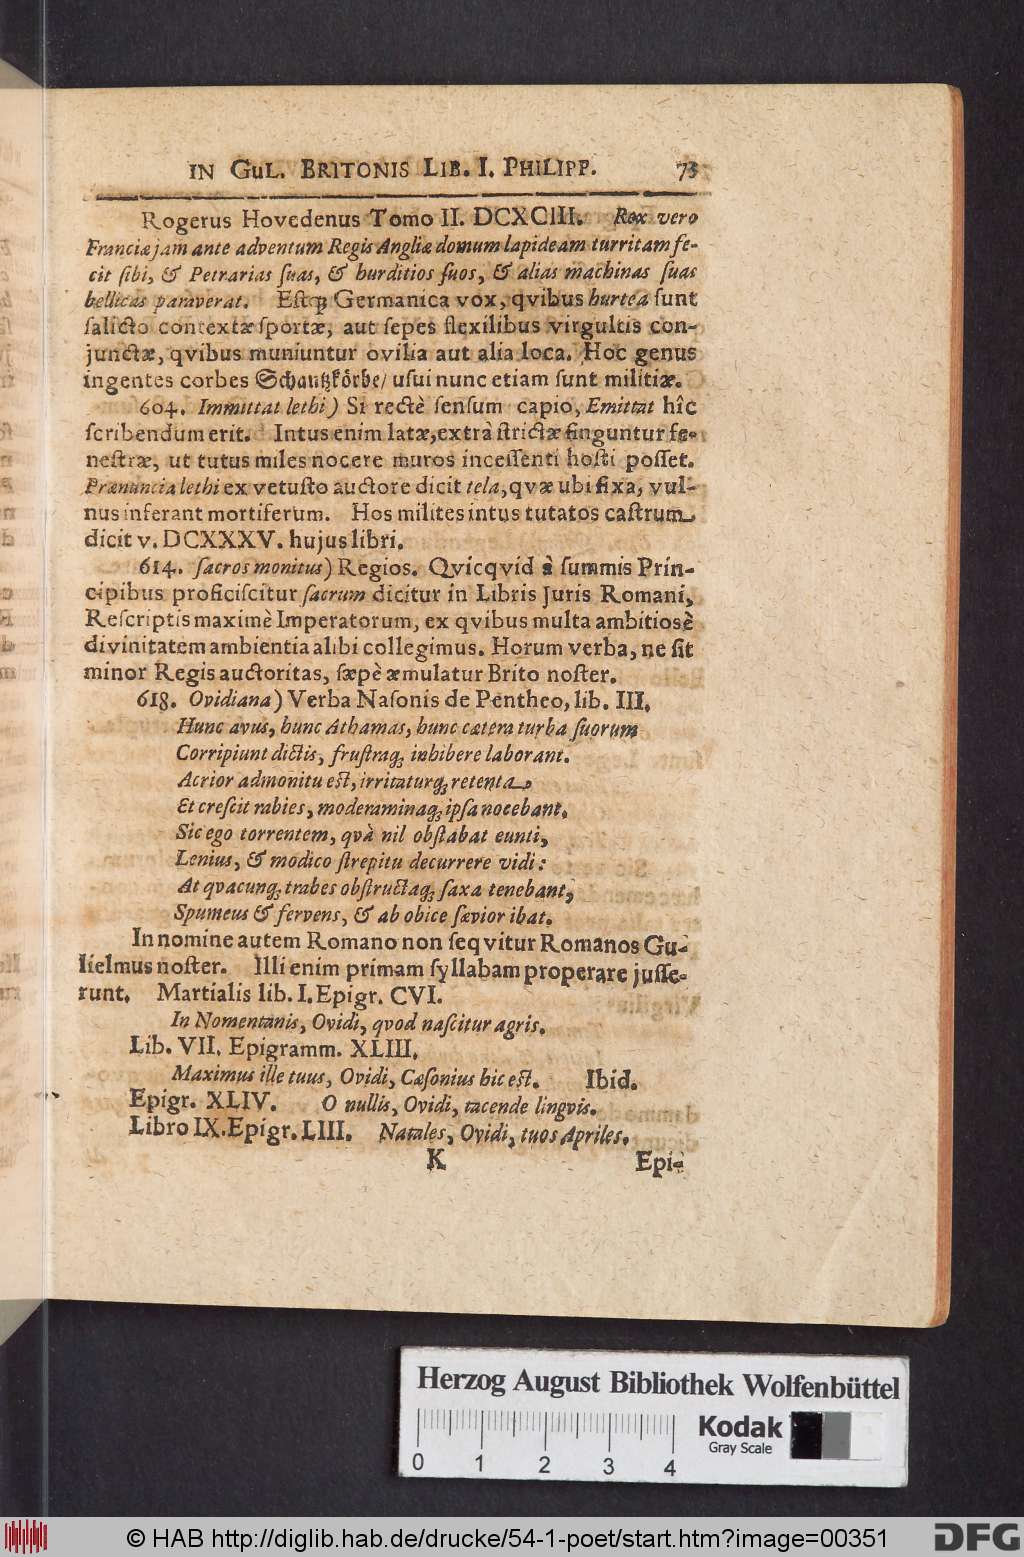 IN GUL. BRITONIS LIB. I. PHILIPP. 73
Rogerus Hovedenus Tomo II. DCXCIII. Rex vero
Franciæ jam ante adventum Regis Angliæ domum lapideam turritam fe-
cit ſibi, & Petrarias ſuas, & hurditios ſuos, & alias machinas ſuas
bellicas paraverat. Eſtq́; Germanica vox, qvibus hurtea ſunt
ſalicto contextæ ſportæ, aut ſepes flexilibus virgultis con-
junctæ, qvibus muniuntur ovilia aut alia loca. Hoc genus
ingentes corbes Schantzkörbe/ uſui nunc etiam ſunt militiæ.
604. Immittat lethi) Si rectè ſenſum capio, Emittat hîc
ſcribendum erit. Intus enim latæ, extrà ſtrictæ finguntur fe-
neſtræ, ut tutus miles nocere muros inceſſenti hoſti poſſet.
Prænuncia lethi ex vetuſto auctore dicit tela, qvæ ubi fixa, vul-
nus inferant mortiferum. Hos milites intus tutatos caſtrum
dicit v. DCXXXV. hujus libri.
614. ſacros monitus) Regios. Qvicqvid à ſummis Prin-
cipibus proficiſcitur ſacrum dicitur in Libris Juris Romani,
Reſcriptis maximè Imperatorum, ex qvibus multa ambitiosè
divinitatem ambientia alibi collegimus. Horum verba, ne ſit
minor Regis auctoritas, ſæpè æmulatur Brito noſter.
618. Ovidiana) Verba Naſonis de Pentheo, lib. III.
Hunc avus, hunc Athamas, hunc cætera turba ſuorum
Corripiunt dictis, fruſtraq; inhibere laborant.
Acrior admonitu eſt, irritaturq; retenta
Et creſcit rabies, moderaminaq; ipſa nocebant.
Sic ego torrentem, qvà nil obſtabat eunti,
Lenius, & modico ſtrepitu decurrere vidi:
At qvacunq; trabes obſtructaq; ſaxa tenebant,
Spumeus & fervens, & ab obice ſævior ibat.
In nomine autem Romano non ſeqvitur Romanos Gu-
lielmus noſter. Illi enim primam ſyllabam properare juſſe-
runt. Martialis lib. I. Epigr. CVI.
In Nomentanis, Ovidi, qvod naſcitur agris.
Lib. VII. Epigramm. XLIII.
Maximus ille tuus, Ovidi, Cæſonius hic eſt. Ibid.
Epigr. XLIV. O nullis, Ovidi, tacende lingvis.
Libro IX. Epigr. LIII. Natales, Ovidi, tuos Apriles.
K Epi-
Herzog August Bibliothek Wolfenbüttel
Kodak
Gray Scale
0 1 2 3 4
© HAB http://diglib.hab.de/drucke/54-1-poet/start.htm?image=00351
DFG